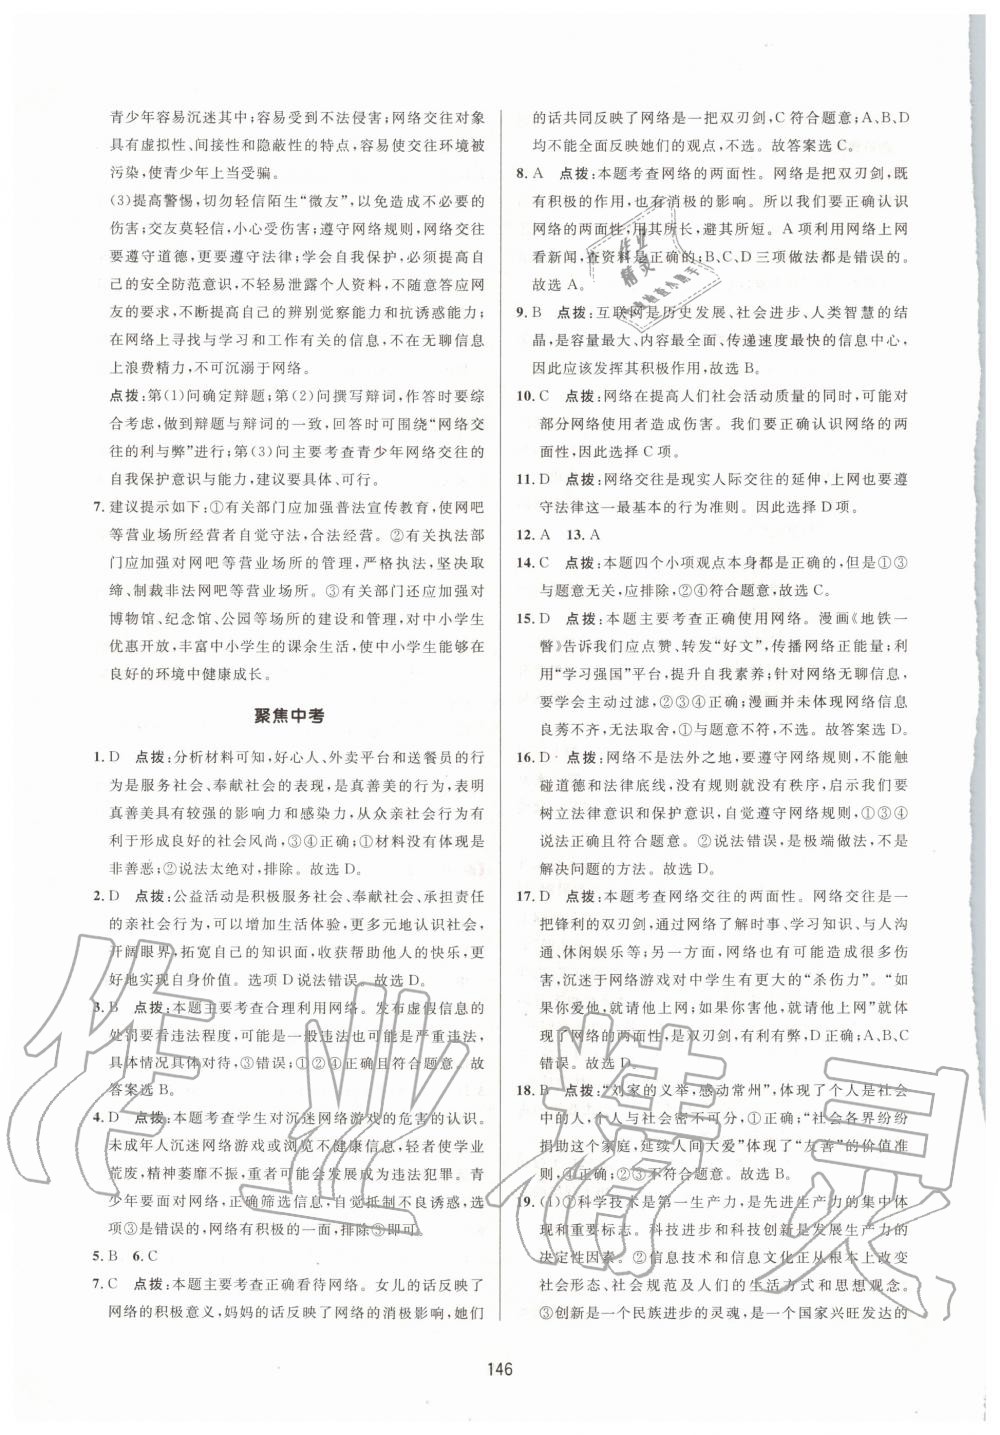 青少年容易沉迷其中;容易受到不法侵害;网络交往对象
具有虚拟性、间接性和隐蔽性的特点,容易使交往环境被
污染,使青少年上当受骗。
(3)提高警惕,切勿轻信陌生“微友”,以免造成不必要的
伤害;交友莫轻信,小心受伤害;遵守网络规则,网络交往
要遵守道德,更要遵守法律;学会自我保护,必须提高自己
的安全防范意识,不轻易泄露个人资料,不随意答应网
友的要求,不断提高自己的辨别觉察能力和抗诱惑能力;
在网络上寻找与学习和工作有关的信息,不在无聊信息
上浪费精力,不可沉溺于网络。
点拨:第(1)问确定辩题;第(2)问撰写辩词,作答时要综
合考虑,做到辩题与辩词的一致,回答时可围绕“网络交
往的利与弊”进行;第(3)问主要考查青少年网络交往的
自我保护意识与能力,建议要具体、可行。
7. 建议提示如下:①有关部门应加强普法宣传教育,使网吧
等营业场所经营者自觉守法,合法经营。②有关执法部
门应加强对网吧等营业场所的管理,严格执法,坚决制
裁、制裁非法网吧等营业场所。③有关部门还应加强对
博物馆、纪念馆、公园等场所的建设和管理,对中小学生
优惠开放,丰富中小学生的课余生活,使中小学生能够在
良好的环境中健康成长。
聚焦中考
1. D 点拨:分析材料可知,好心人、外卖平台和送餐员的行
为是服务社会、奉献社会的表现,是真善美的行为,表明
真善美具有较强的影响力和感染力,从众亲社会行为有
利于形成良好的社会风尚,③④正确;①材料没有体现是
非善恶;②说法太绝对,排除。故选 D。
2. D 点拨:公益活动是积极服务社会、奉献社会、承担责任
的亲社会行为,可以增加生活体验,更多元地认识社会,
开阔眼界,拓宽自己的知识面,收获帮助他人的快乐,更
好地实现自身价值。选项 D 说法错误。故选 D。
3. B 点拨:本题主要考查合理利用网络。发布虚假信息的
处罚要看违法程度,可能是一般违法也可能是严重违法,
具体情况具体对待,③错误;①②④正确且符合题意。故
答案选 B。
4. D 点拨:本题考查学生对沉迷网络游戏的危害的认识。
未成年人沉迷网络游戏或浏览不健康信息,轻者使学业
荒废,精神萎靡不振,重者可能会发展成为违法犯罪。青
少年要面对网络,正确筛选信息,自觉抵制不良诱惑,选
项③是错误的,网络有积极的一面,排除③即可。
5. B 6. C
7. C 点拨:本题主要考查正确看待网络。女儿的话反映了
网络的积极意义,妈妈的话反映了网络的消极影响,她们
的话共同反映了网络是一把双刃剑,C 符合题意;A、B、D
均不能全面反映她们的观点,不选。故答案选 C。
8. A 点拨:本题考查网络的两面性。网络是把双刃剑,既
有积极的作用,也有消极的影响。所以我们要正确认识
网络的两面性,用其所长,避其所短。A 项利用网络上网
看新闻,查资料是正确的;B、C、D 三项做法都是错误的。
故选 A。
9. B 点拨:互联网是历史发展、社会进步、人类智慧的结
晶,是容量最大、内容最全、传递速度最快的信息中心,
因此应该发挥其积极作用,故选 B。
10. C 点拨:网络在提高人们社会活动质量的同时,可能对
部分网络使用者造成伤害。我们要正确认识网络的两
面性,因此选择 C 项。
11. D 点拨:网络交往是现实人际交往的延伸,上网也要遵
守法律这一最基本的行为准则。因此选择 D 项。
12. A 13. A
14. C 点拨:本题四个小项观点本身都是正确的,但是①③
与题意无关,应排除,②④符合题意,故选 C。
15. D 点拨:本题主要考查正确使用网络。漫画《地铁一
瞥》告诉我们应点赞、转发“好文”,传播网络正能量;利
用“学习强国”平台,提升自我素养;对网络无聊信息,
要学会主动过滤,②③④正确;漫画并未体现网络信息
良莠不齐、无法取舍,①与题意不符,不选。故答案选 D。
16. D 点拨:网络不是法外之地,要遵守网络规则,不能触
碰道德和法律底线,没有规则就没有秩序,启示我们要
树立法律意识和保护意识,自觉遵守网络规则,①③④
说法正确且符合题意。②说法错误,是极端做法,不是
解决问题的方法。故选 D。
17. D 点拨:本题考查网络交往的两面性。网络交往是一
把锋利的双刃剑,通过网络了解时事、学习知识、与人沟
通、休闲娱乐等;另一方面,网络也有可能造成很多伤
害,沉迷于网络游戏对中学生有更大的“杀伤力”。“如
果你爱他,就请他上网;如果你害他,就请他上网”就体
现了网络的两面性,是双刃剑,有利有弊,D 正确;A、B、C
错误。故选 D。
18. B 点拨:“刘家的义举,感动常州”,体现了个人是社会
中的人,个人与社会密不可分,①正确;“社会各界纷纷
捐助这个家庭,延续人间大爱”体现了“友善”的价值准
则,④正确;②③不符合题意。故选 B。
19. (1)①科学技术是第一生产力,是先进生产力的集中体
现和重要标志。科技进步和科技创新是发展生产力的
决定性因素。②信息技术和信息文化正从根本上改变
社会形态、社会规范及人们的生活方式和思想观念。
③创新是一个民族进步的灵魂,是一个国家兴旺发达的
146
作业精灵
作业
精灵